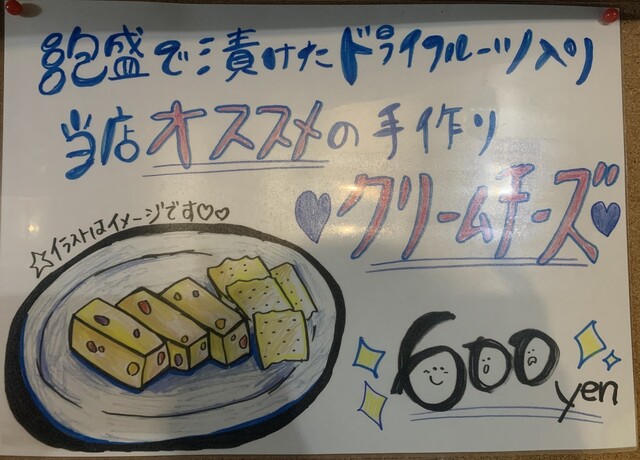 泡盛で漬けたドライフルーツ入り
当店オススメの手作り
♥クリームチーズ♥
☆イラストはイメージです♡♡
600
yen